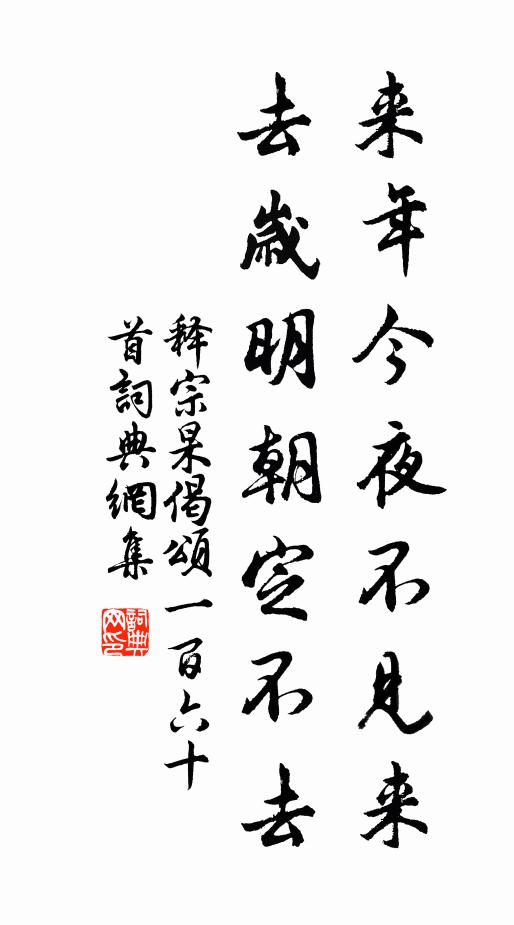 来年今夜不见来
去岁明朝定不去
释宗杲偈頌一百六十
首詞典網集
詞典
网印